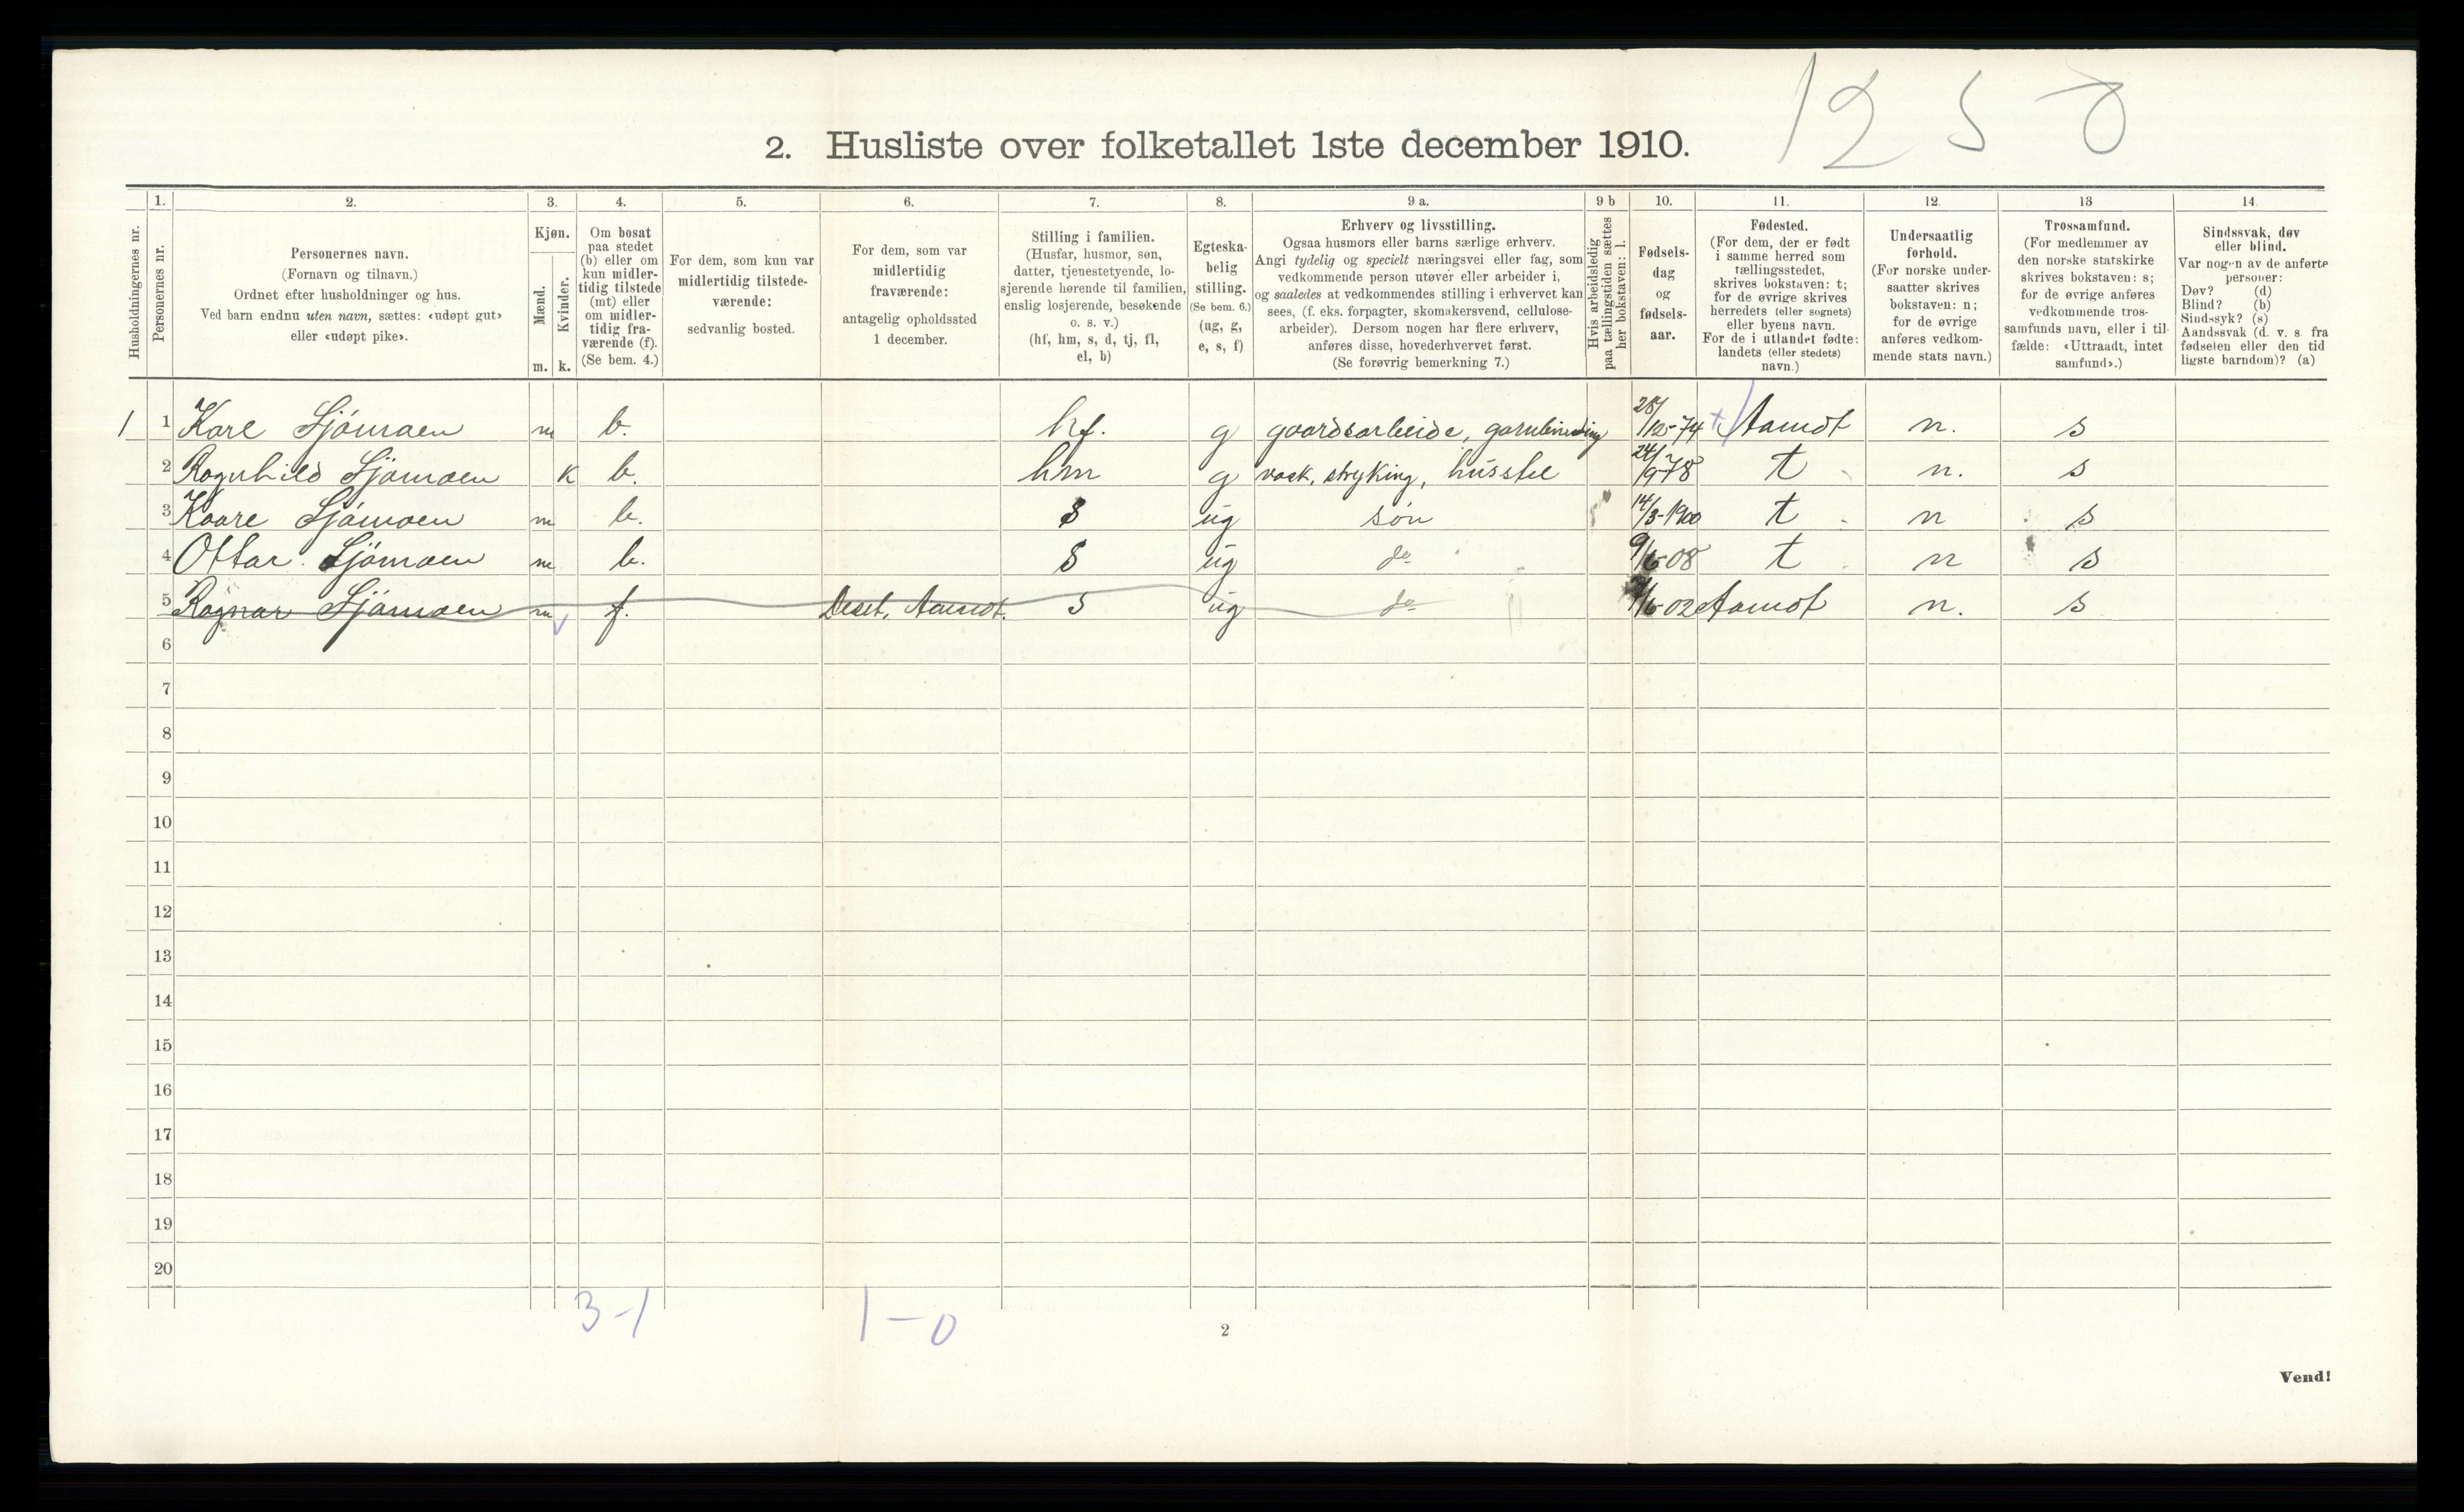 12 5 0
2. Husliste over folketallet 1ste december 1910.
1. 2. 3. 4. 5. 6. 7. 8. 9 a. 9 b 10. 11. 12. 13 14
Husholdningernes nr.
Personernes nr.
Personernes navn.
(Fornavn og tilnavn.)
Ordnet efter husholdninger og hus.
Ved barn endnu uten navn, sættes: «udøpt gut»
eller «udøpt pike».
Kjøn.
Mænd.
Kvinder.
m. k.
Om bosat
paa stedet
(b) eller om
kun midler-
tidig tilstede
(mt) eller
om midler-
tidig fra-
værende (f).
(Se bem. 4.)
For dem, som kun var
midlertidig tilstede-
værende:
sedvanlig bosted.
For dem, som var
midlertidig
fraværende:
antagelig opholdssted
1 december.
Stilling i familien.
(Husfar, husmor, søn,
datter, tjenestetyende, lo-
sjerende hørende til familien,
enslig losjerende, besøkende
o. s. v.)
(hf, hm, s, d, tj, fl,
el, b)
Egteska-
belig
stilling.
(Se bem. 6.)
(ug, g,
e, s, f)
Erhverv og livsstilling.
Ogsaa husmors eller barns særlige erhverv.
Angi tydelig og specielt næringsvei eller fag, som
vedkommende person utøver eller arbeider i,
og saaledes at vedkommendes stilling i erhvervet kan
sees, (f. eks. forpagter, skomakersvend, cellulose-
arbeider). Dersom nogen har flere erhverv,
anføres disse, hovederhvervet først.
(Se forøvrig bemerkning 7.)
Hvis arbeidsledig
paa tællingstiden sættes
her bokstaven: l.
Fødsels-
dag
og
fødsels-
aar.
Fødested.
(For dem, der er født
i samme herred som
tællingsstedet,
skrives bokstaven: t;
for de øvrige skrives
herredets (eller sognets)
eller byens navn.
For de i utlandet fødte:
landets (eller stedets)
navn.)
Undersaatlig
forhold.
(For norske under-
saatter skrives
bokstaven: n;
for de øvrige
anføres vedkom-
mende stats navn.)
Trossamfund.
(For medlemmer av
den norske statskirke
skrives bokstaven: s;
for de øvrige anføres
vedkommende tros-
samfunds navn, eller i til-
fælde: «Uttraadt, intet
samfund».)
Sindssvak, døv
eller blind.
Var nogen av de anførte
personer:
Døv? (d)
Blind? (b)
Sindssyk? (s)
Aandssvak (d. v. s. fra
fødselen eller den tid
ligste barndom)? (a)
1 1 Kare Sjømoen m b. hf. g gaardsarbeide, garnbinding 28/12-74 Aamot n. s
2 Ragnhild Sjømoen k b. hm g vask, stryking, husstel 24/9-78 t n. s
3 Kaare Sjømoen m b. s ug søn 14/3-1900 t n s
4 Ottar Sjømoen m b. s ug do 9/6-08 t n s
5 Ragnar Sjømoen m f. Deset, Aamot. s ug do /6-02 Aamot n. s
6
7
8
9
10
11
12
13
14
15
16
17
18
19
20
3-1 1-0
2
Vend!